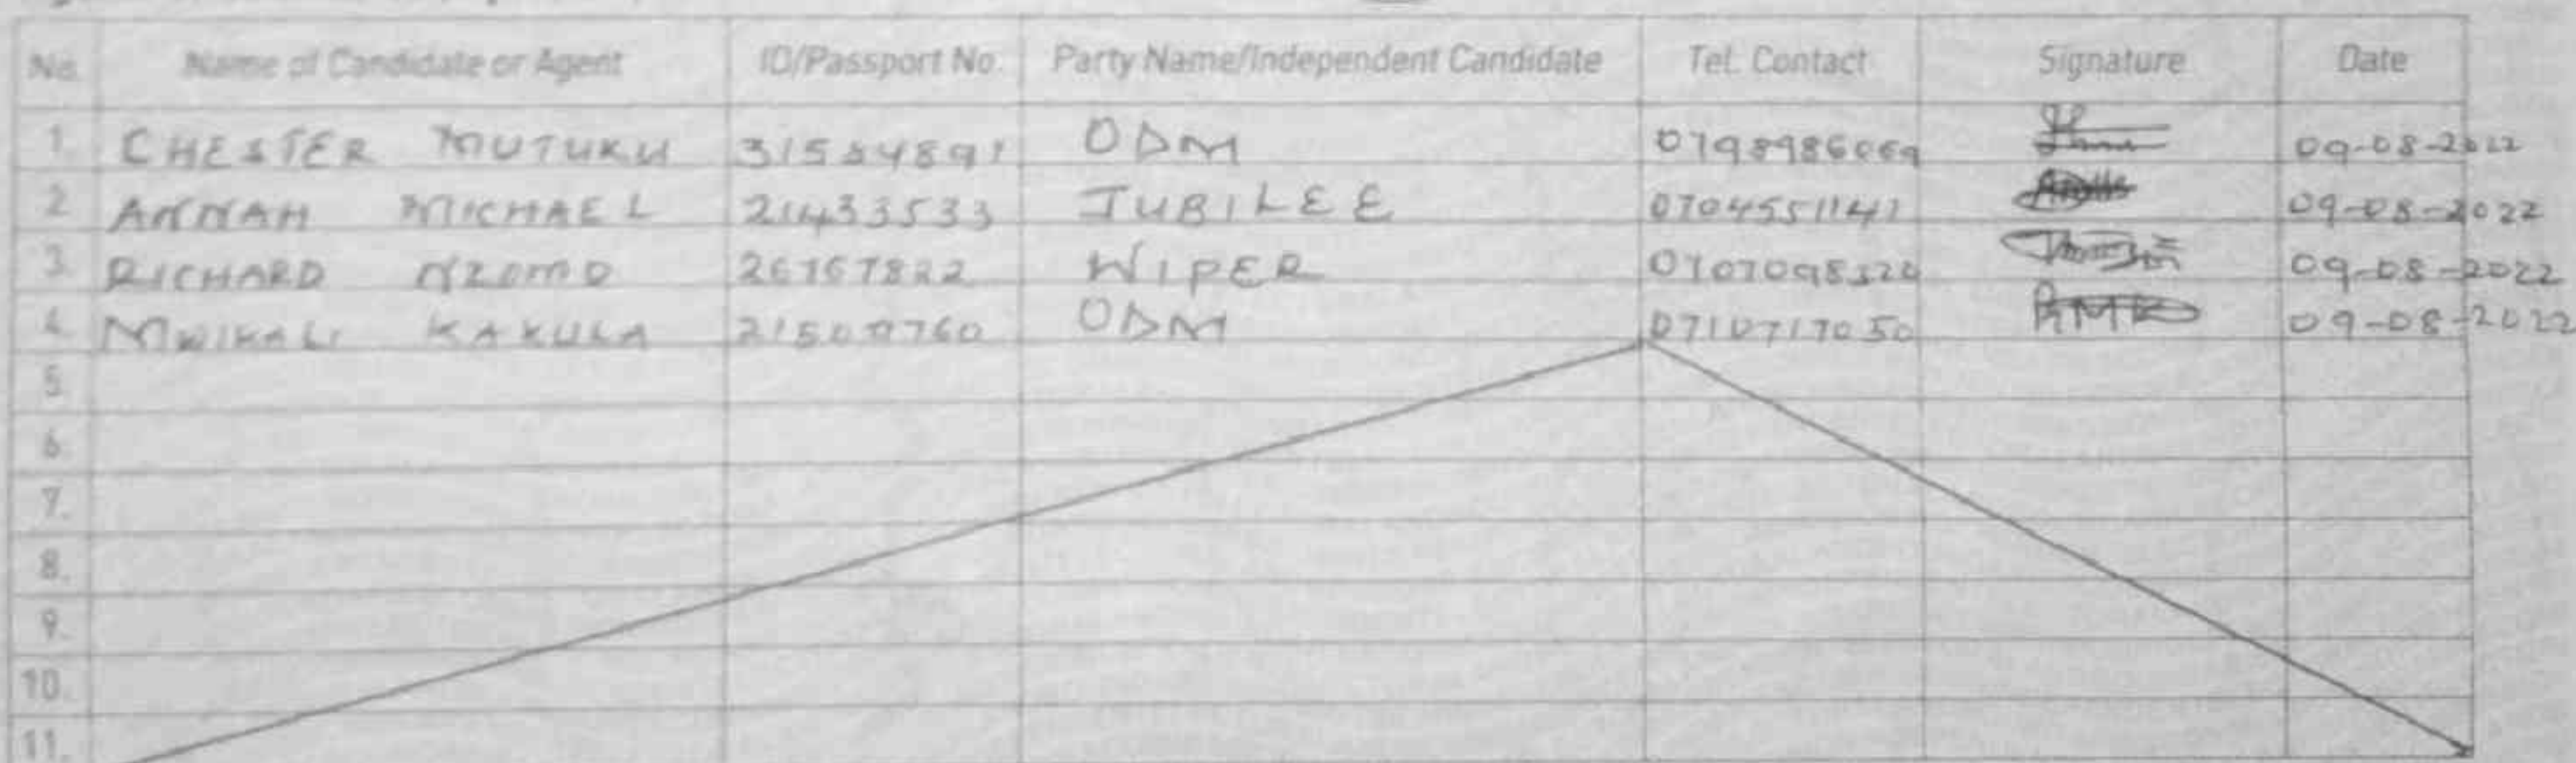 No. Name of Candidate or Agent ID/Passport No. Party Name/Independent Candidate Tel. Contact Signature Date
1. CHESTER MUTUKU ODM 0798986069 09-08-2022
2. ANNAH MICHAEL 21433533 JUBILEE 0704551141 09-08-2022
3. RICHARD NZOMO WIPER 09-08-2022
4. MWIKALI KAKULA ODM 0710717050 09-08-2022
5.
6.
7.
8.
9.
10.
11.